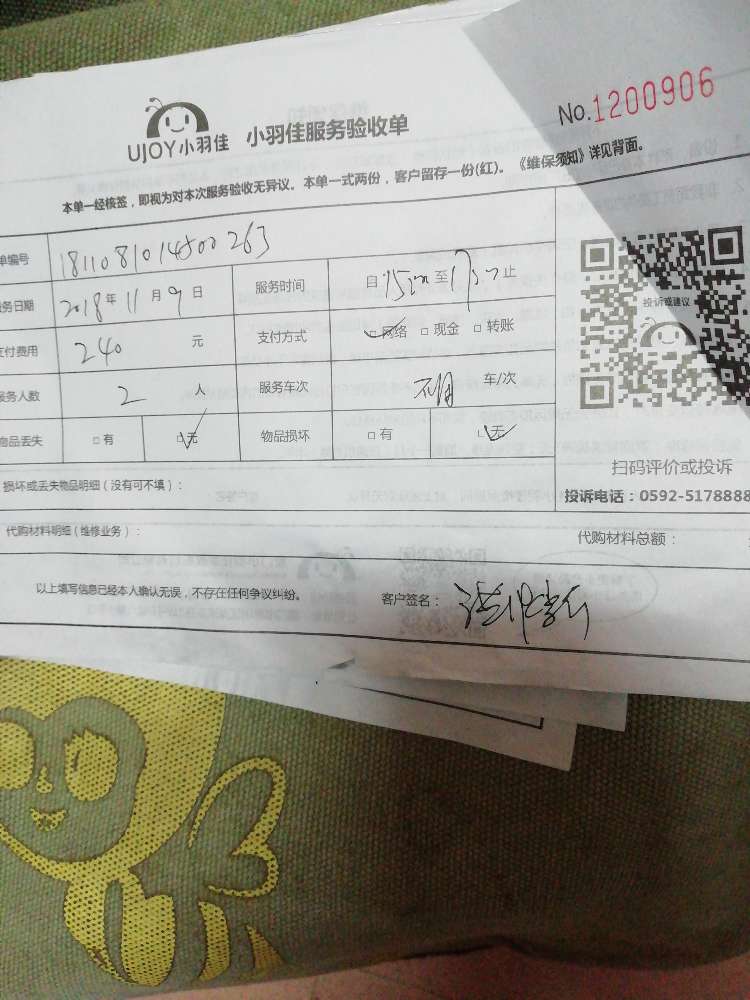 No.1200906
UJOY小羽佳 小羽佳服务验收单
本单一经核签，即视为对本次服务验收无异议。本单一式两份，客户留存一份(红)。《维保须知》详见背面。
单编号 1811081014800263
务日期 2018年11月9日 服务时间 自 至 止
支付费用 240 元 支付方式 □网络 □现金 □转账
服务人数 2 人 服务车次 不用 车/次
物品丢失 □有 □无 物品损坏 □有 □无
投诉或建议
扫码评价或投诉
投诉电话：0592-5178888
损坏或丢失物品明细（没有可不填）：
代购材料明细（维修业务）： 代购材料总额：
以上填写信息已经本人确认无误，不存在任何争议纠纷。 客户签名：